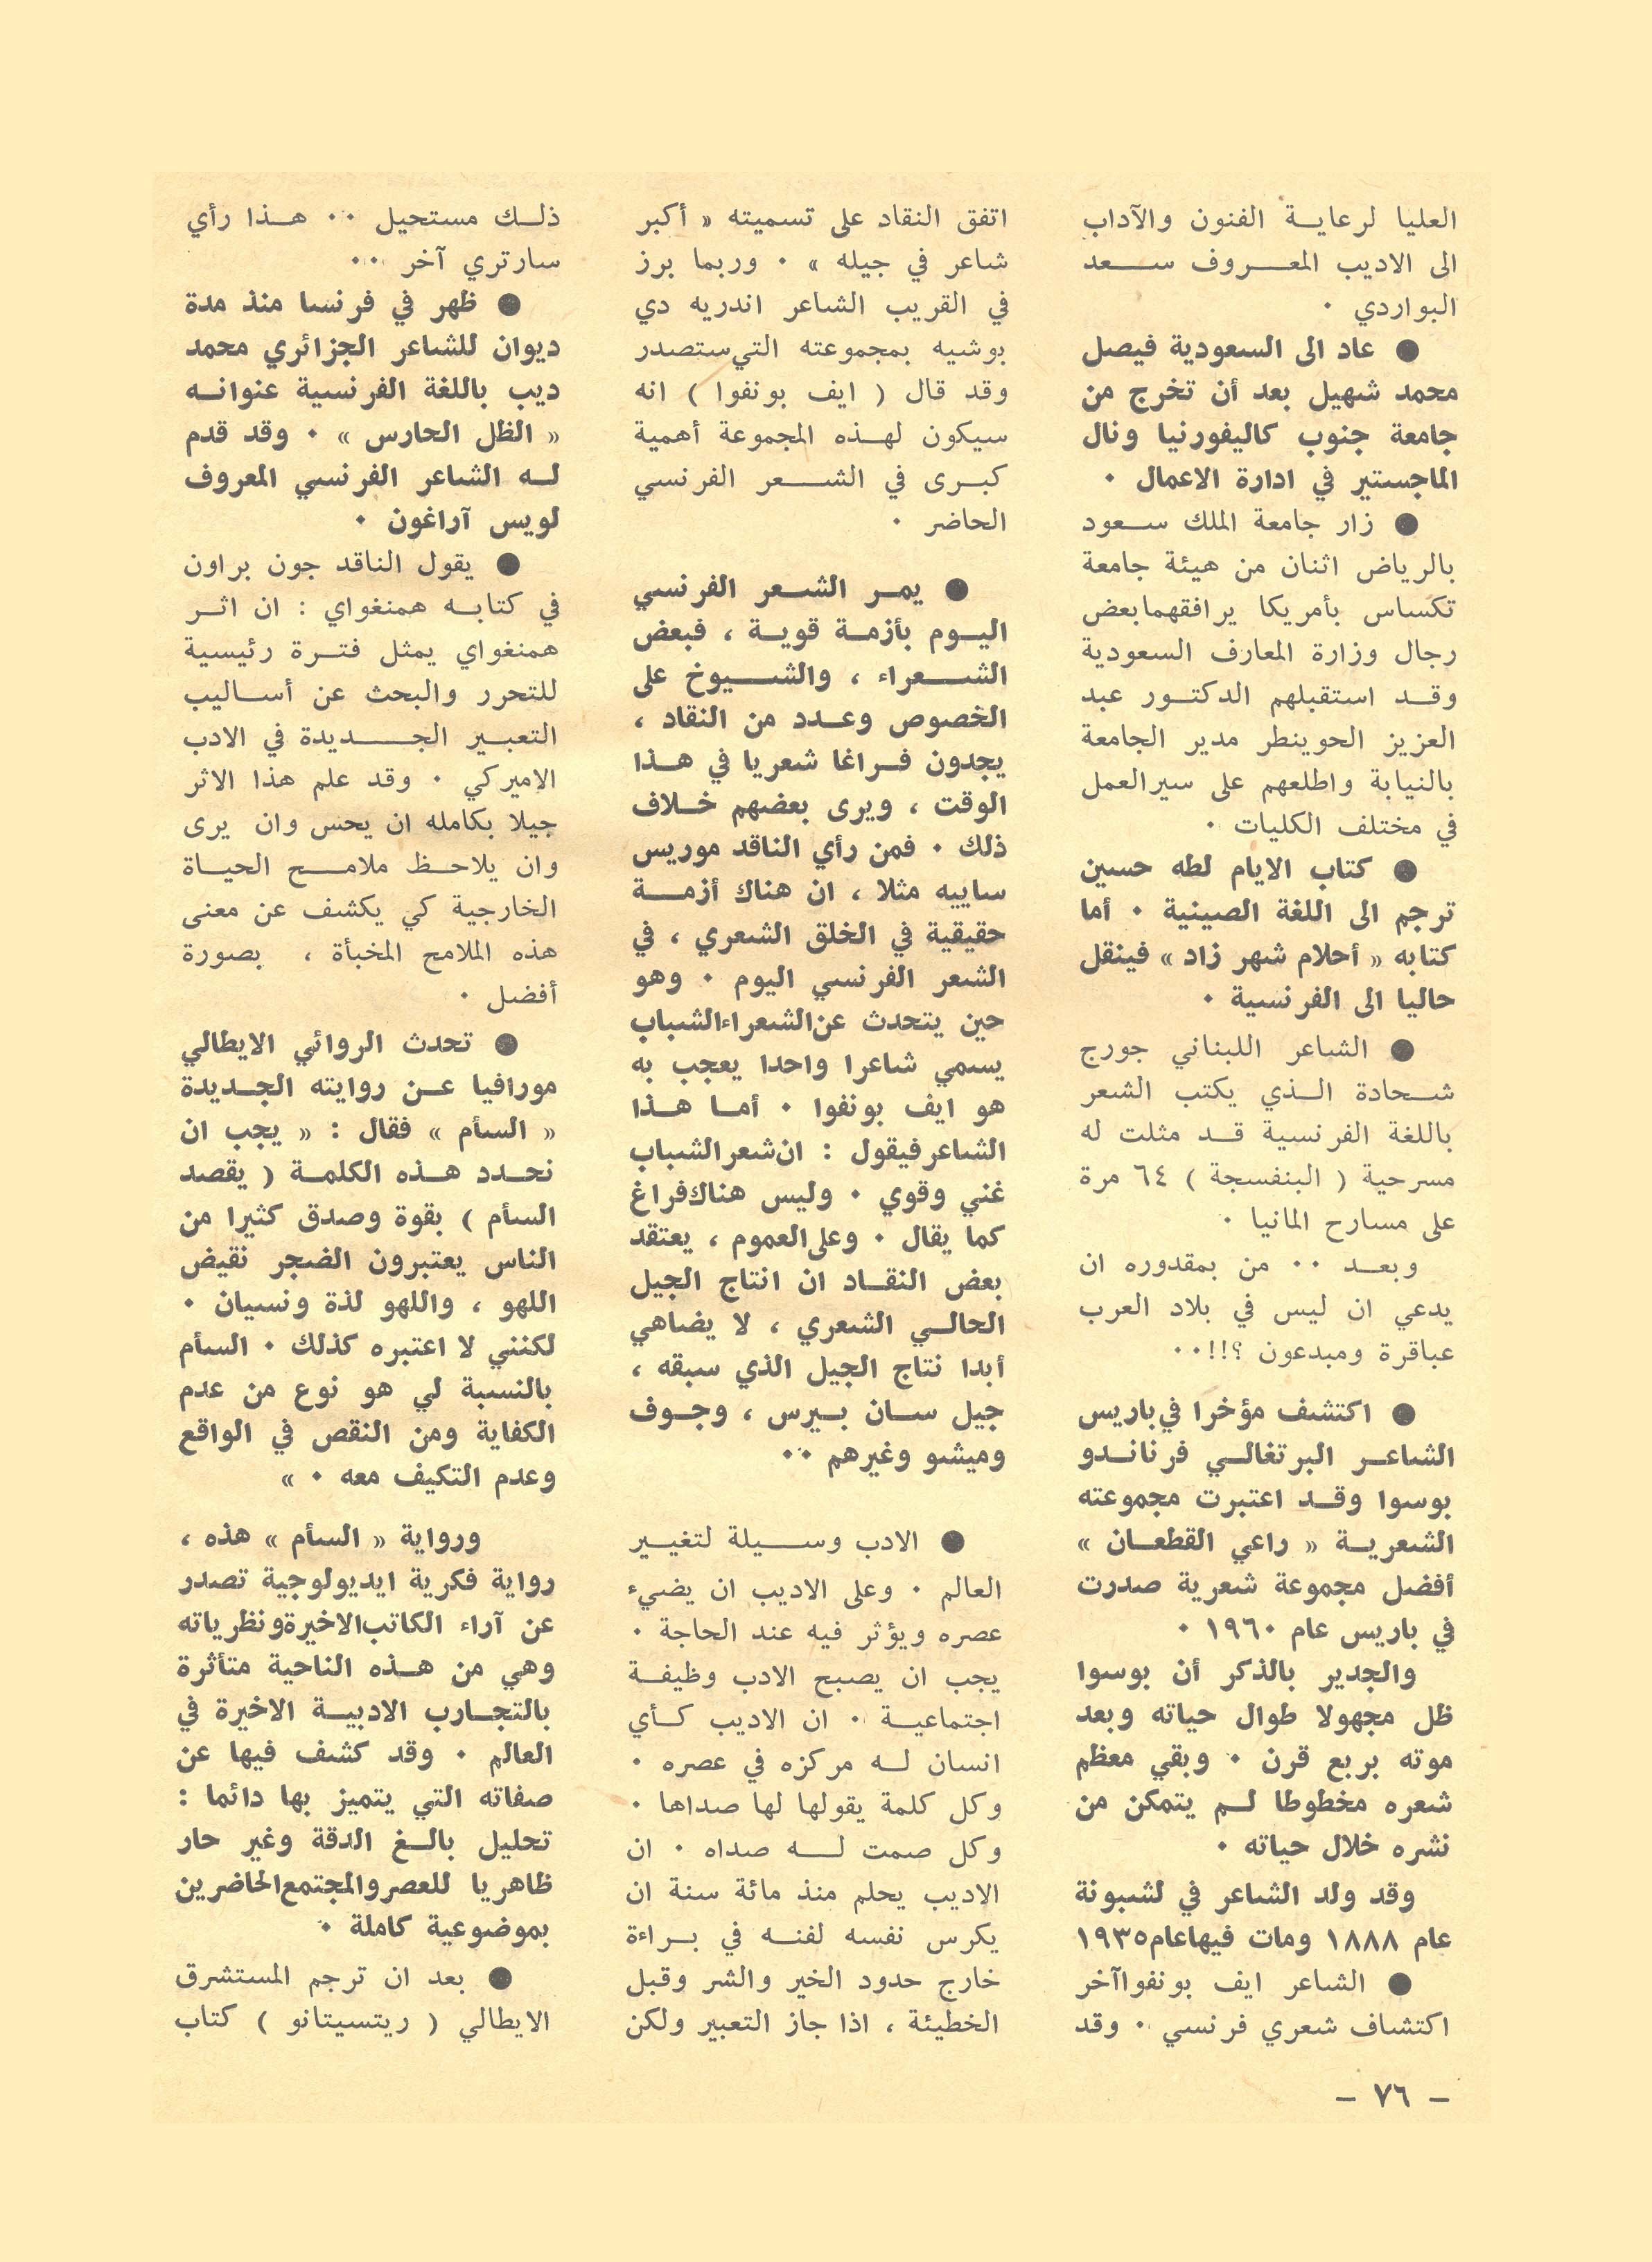 العليا لرعاية الفنون والآداب
الى الاديب المعروف سعد
البواردي ٠
● عاد الى السعودية فيصل
محمد شهيل بعد أن تخرج من
جامعة جنوب كاليفورنيا ونال
الماجستير في ادارة الاعمال ٠
● زار جامعة الملك سعود
بالرياض اثنان من هيئة جامعة
تكساس بأمريكا يرافقهما بعض
رجال وزارة المعارف السعودية
وقد استقبلهم الدكتور عبد
العزيز الحوينطر مدير الجامعة
بالنيابة واطلعهم على سير العمل
في مختلف الكليات ٠
● كتاب الايام لطه حسين
ترجم الى اللغة الصينية ٠ أما
كتابه « أحلام شهر زاد » فينقل
حاليا الى الفرنسية ٠
● الشاعر اللبناني جورج
شحادة الذي يكتب الشعر
باللغة الفرنسية قد مثلت له
مسرحية ( البنفسجة ) ٦٤ مرة
على مسارح المانيا ٠
وبعد ٠٠ من بمقدوره ان
يدعي ان ليس في بلاد العرب
عباقرة ومبدعون ؟!!٠٠
● اكتشف مؤخرا في باريس
الشاعر البرتغالي فرناندو
بوسوا وقد اعتبرت مجموعته
الشعرية « راعي القطعان »
أفضل مجموعة شعرية صدرت
في باريس عام ١٩٦٠ ٠
والجدير بالذكر أن بوسوا
ظل مجهولا طوال حياته وبعد
موته بربع قرن ٠ وبقي معظم
شعره مخطوطا لم يتمكن من
نشره خلال حياته ٠
وقد ولد الشاعر في لشبونة
عام ١٨٨٨ ومات فيها عام ١٩٣٥
● الشاعر ايف بونفوا آخر
اكتشاف شعري فرنسي ٠ وقد
اتفق النقاد على تسميته « أكبر
شاعر في جيله » ٠ وربما برز
في القريب الشاعر اندريه دي
بوشيه بمجموعته التي ستصدر
وقد قال ( ايف بونفوا ) انه
سيكون لهذه المجموعة أهمية
كبرى في الشعر الفرنسي
الحاضر ٠
● يمر الشعر الفرنسي
اليوم بأزمة قوية ، فبعض
الشعراء ، والشيوخ على
الخصوص وعدد من النقاد ،
يجدون فراغا شعريا في هذا
الوقت ، ويرى بعضهم خلاف
ذلك ٠ فمن رأي الناقد موريس
ساييه مثلا ، ان هناك أزمة
حقيقية في الخلق الشعري ، في
الشعر الفرنسي اليوم ٠ وهو
حين يتحدث عن الشعراء الشباب
يسمي شاعرا واحدا يعجب به
هو ايف بونفوا ٠ أما هذا
الشاعر فيقول : ان شعر الشباب
غني وقوي ٠ وليس هناك فراغ
كما يقال ٠ وعلى العموم ، يعتقد
بعض النقاد ان انتاج الجيل
الحالي الشعري ، لا يضاهي
أبدا نتاج الجيل الذي سبقه ،
جيل سان بيرس ، وجوف
وميشو وغيرهم ٠٠
● الادب وسيلة لتغيير
العالم ٠ وعلى الاديب ان يضيء
عصره ويؤثر فيه عند الحاجة ٠
يجب ان يصبح الادب وظيفة
اجتماعية ٠ ان الاديب كأي
انسان له مركزه في عصره ٠
وكل كلمة يقولها لها صداها ٠
وكل صمت له صداه ٠ ان
الاديب يحلم منذ مائة سنة ان
يكرس نفسه لفنه في براءة
خارج حدود الخير والشر وقبل
الخطيئة ، اذا جاز التعبير ولكن
ذلك مستحيل ٠٠ هذا رأي
سارتري آخر ٠٠
● ظهر في فرنسا منذ مدة
ديوان للشاعر الجزائري محمد
ديب باللغة الفرنسية عنوانه
« الظل الحارس » ٠ وقد قدم
له الشاعر الفرنسي المعروف
لويس آراغون ٠
● يقول الناقد جون براون
في كتابه همنغواي : ان اثر
همنغواي يمثل فترة رئيسية
للتحرر والبحث عن أساليب
التعبير الجديدة في الادب
الاميركي ٠ وقد علم هذا الاثر
جيلا بكامله ان يحس وان يرى
وان يلاحظ ملامح الحياة
الخارجية كي يكشف عن معنى
هذه الملامح المخبأة ، بصورة
أفضل ٠
● تحدث الروائي الايطالي
مورافيا عن روايته الجديدة
« السأم » فقال : « يجب ان
نحدد هذه الكلمة ( يقصد
السأم ) بقوة وصدق كثيرا من
الناس يعتبرون الضجر نقيض
اللهو ، واللهو لذة ونسيان ٠
لكنني لا اعتبره كذلك ٠ السأم
بالنسبة لي هو نوع من عدم
الكفاية ومن النقص في الواقع
وعدم التكيف معه ٠ »
ورواية « السأم » هذه ،
رواية فكرية ايديولوجية تصدر
عن آراء الكاتب الاخيرة ونظرياته
وهي من هذه الناحية متأثرة
بالتجارب الادبية الاخيرة في
العالم ٠ وقد كشف فيها عن
صفاته التي يتميز بها دائما :
تحليل بالغ الدقة وغير حار
ظاهريا للعصر والمجتمع الحاضرين
بموضوعية كاملة ٠
● بعد ان ترجم المستشرق
الايطالي ( ريتسيتانو ) كتاب
– ٧٦ –